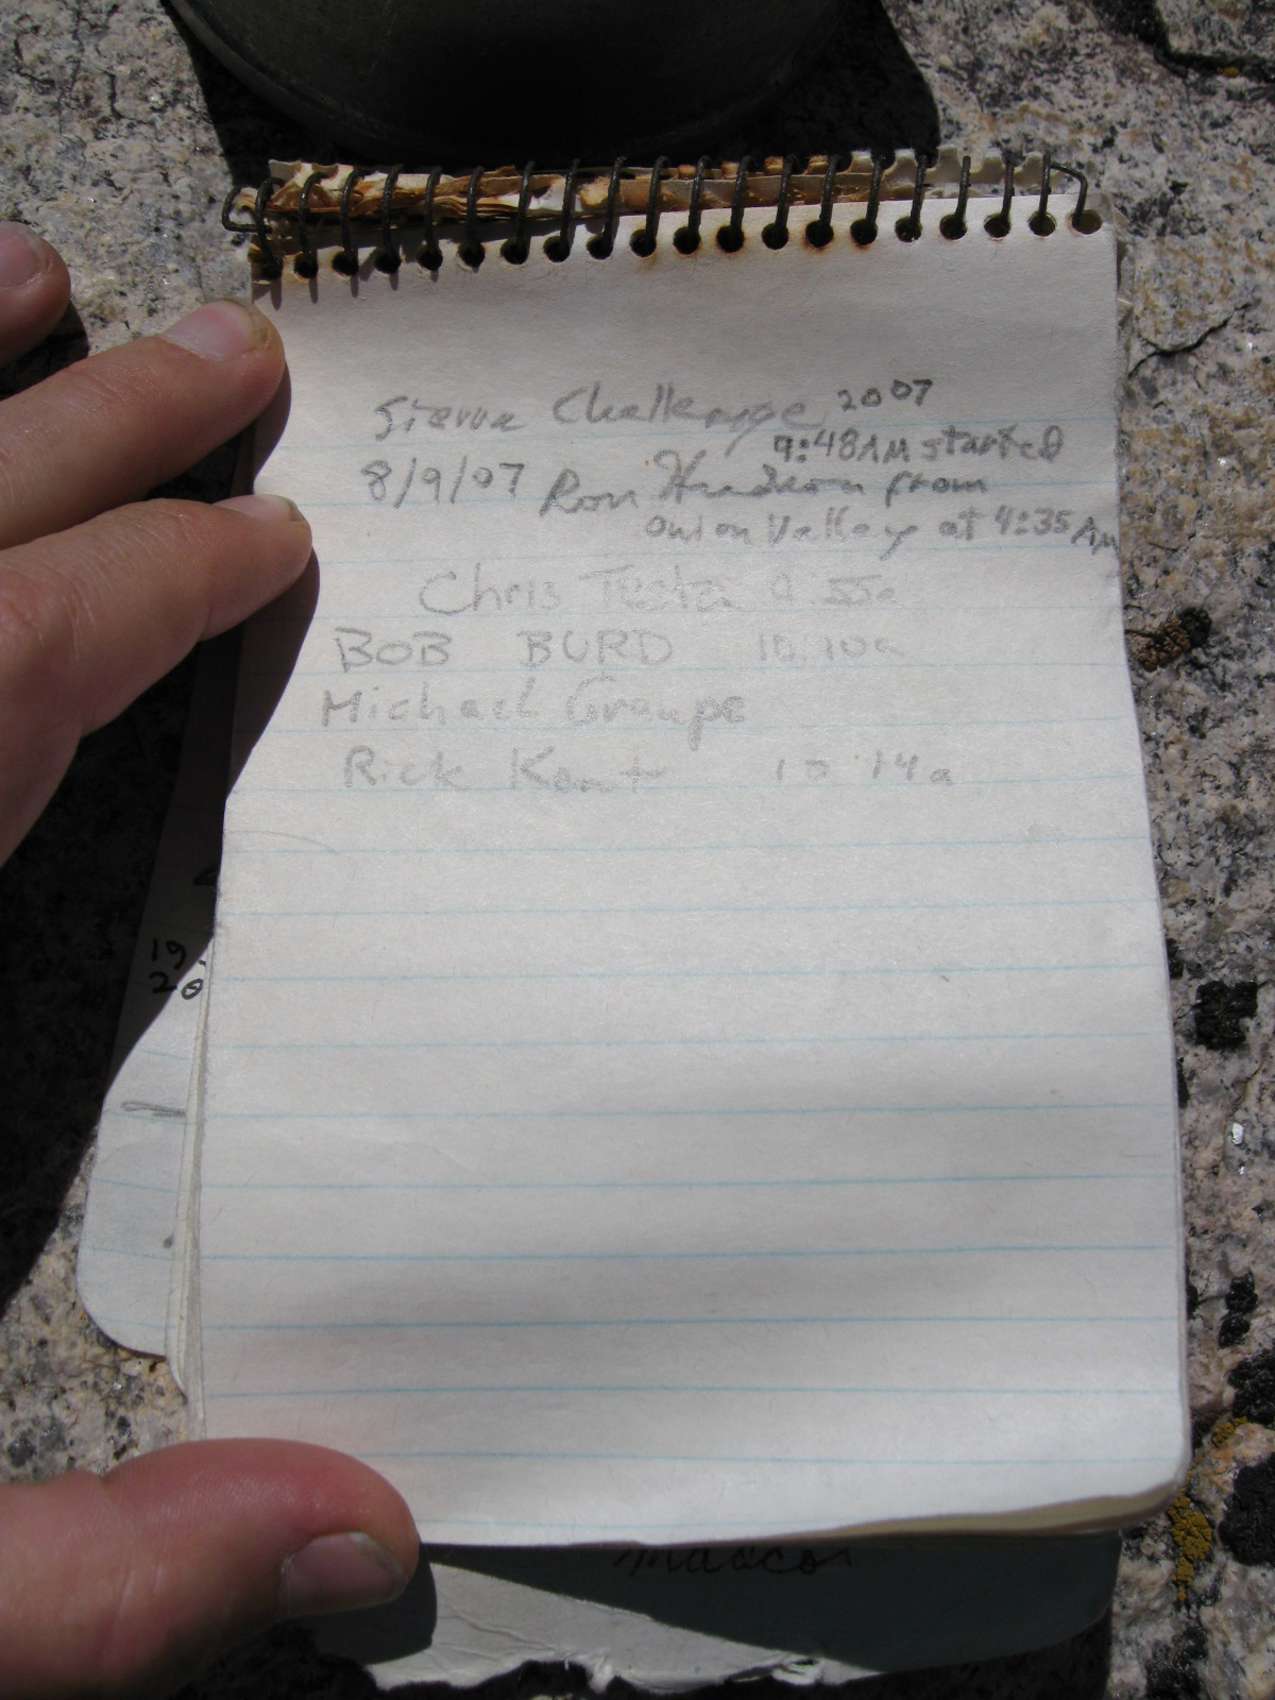 Sierra Challenge 2007
9:48AM started
8/9/07 Ron Hudson from
Onion Valley at 4:35 AM
Chris Testa 9:55a
BOB BURD 10:10a
Michael Graupe
Rick Kent 10:14a
19.
20